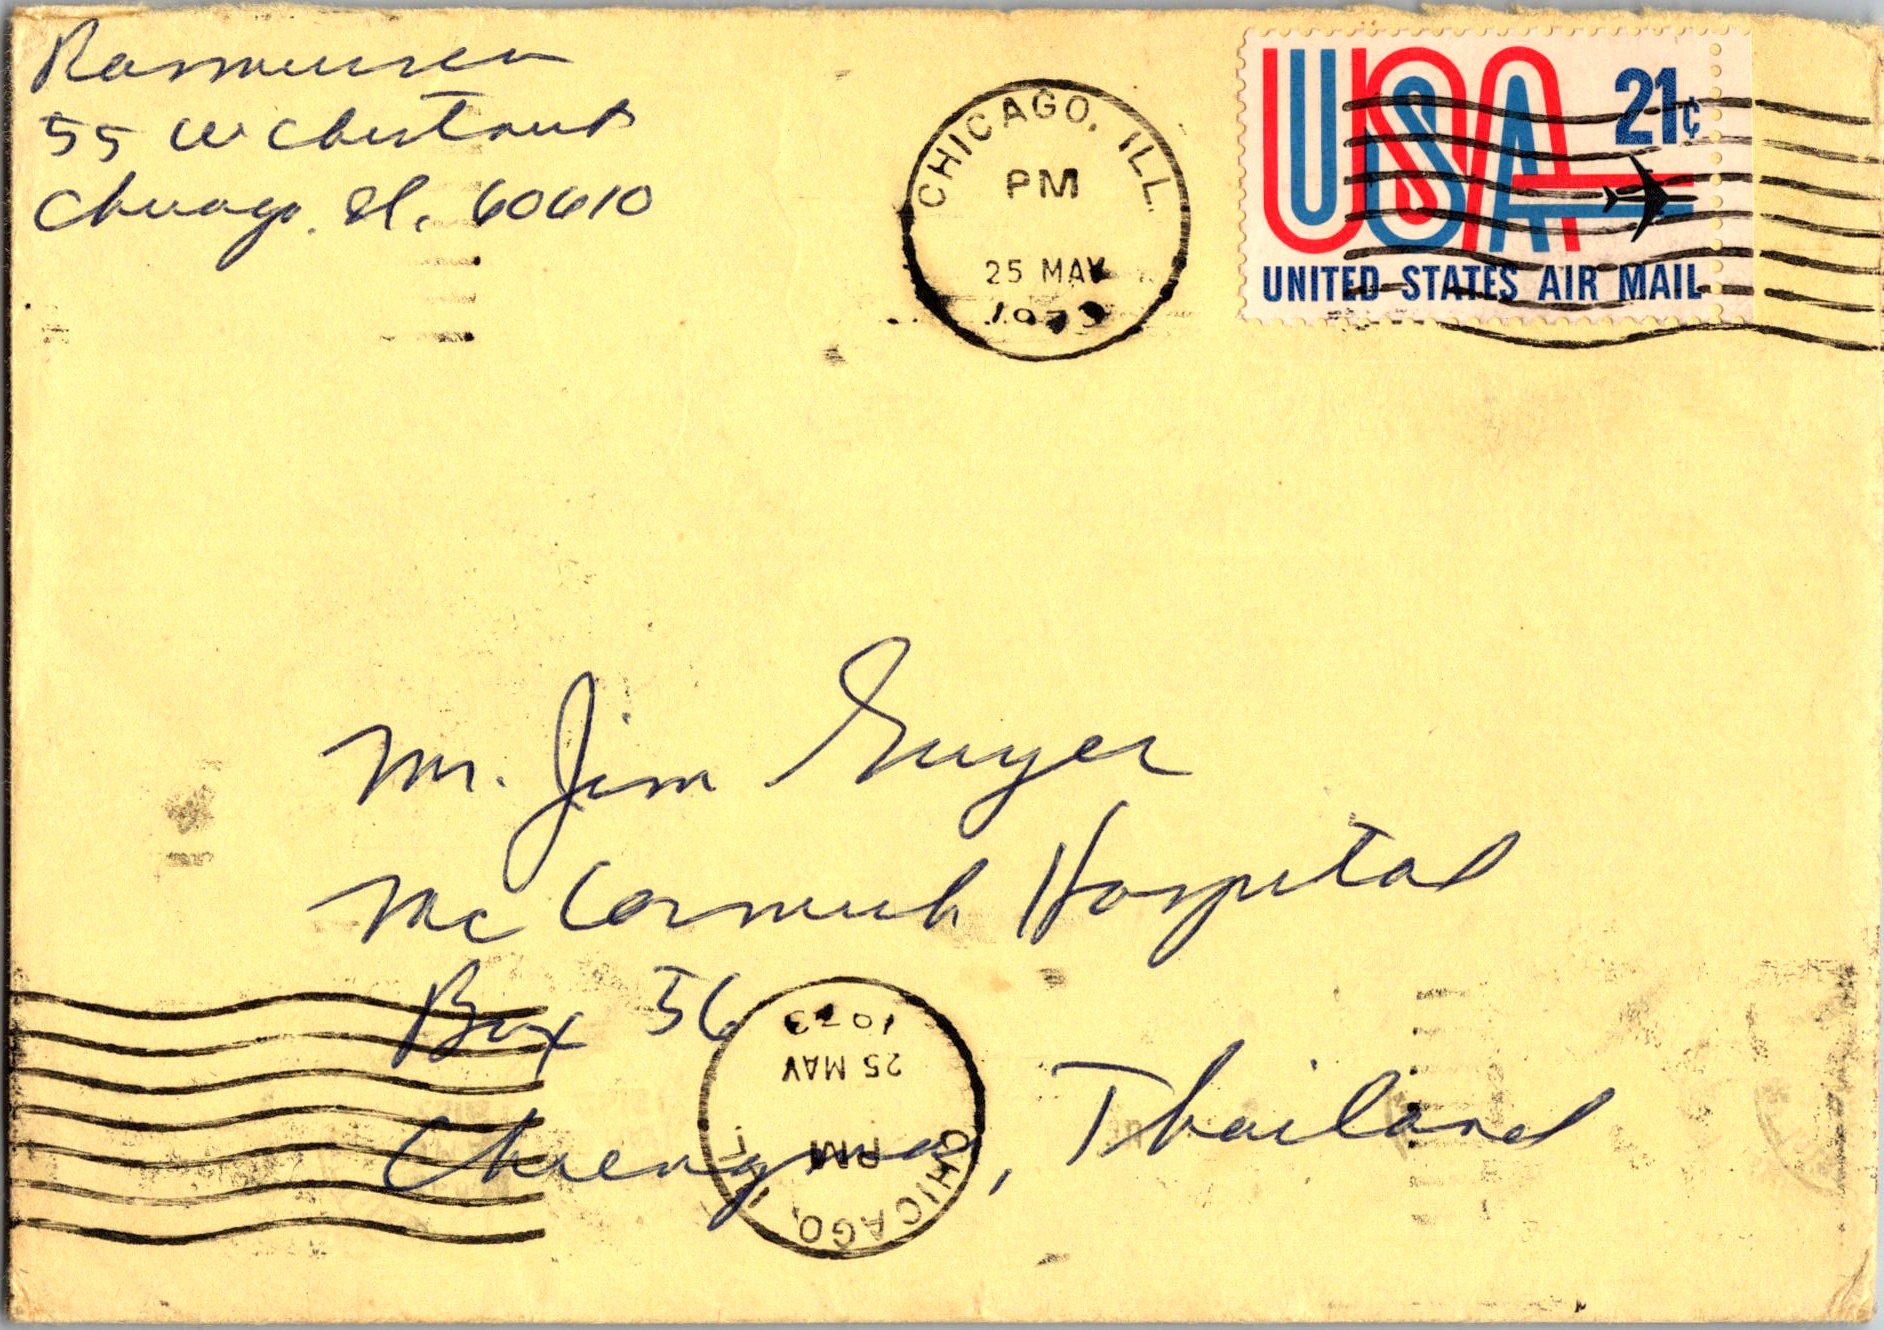 Rasmussen
55 W Chestnut
Chicago, Il. 60610
CHICAGO, ILL.
PM
25 MAY
1973
USA 21¢
UNITED STATES AIR MAIL
Mr. Jim Guyer
McCormick Hospital
Box 56
Chiengmai, Thailand
1973
25 MAY
PM
CHICAGO, ILL.